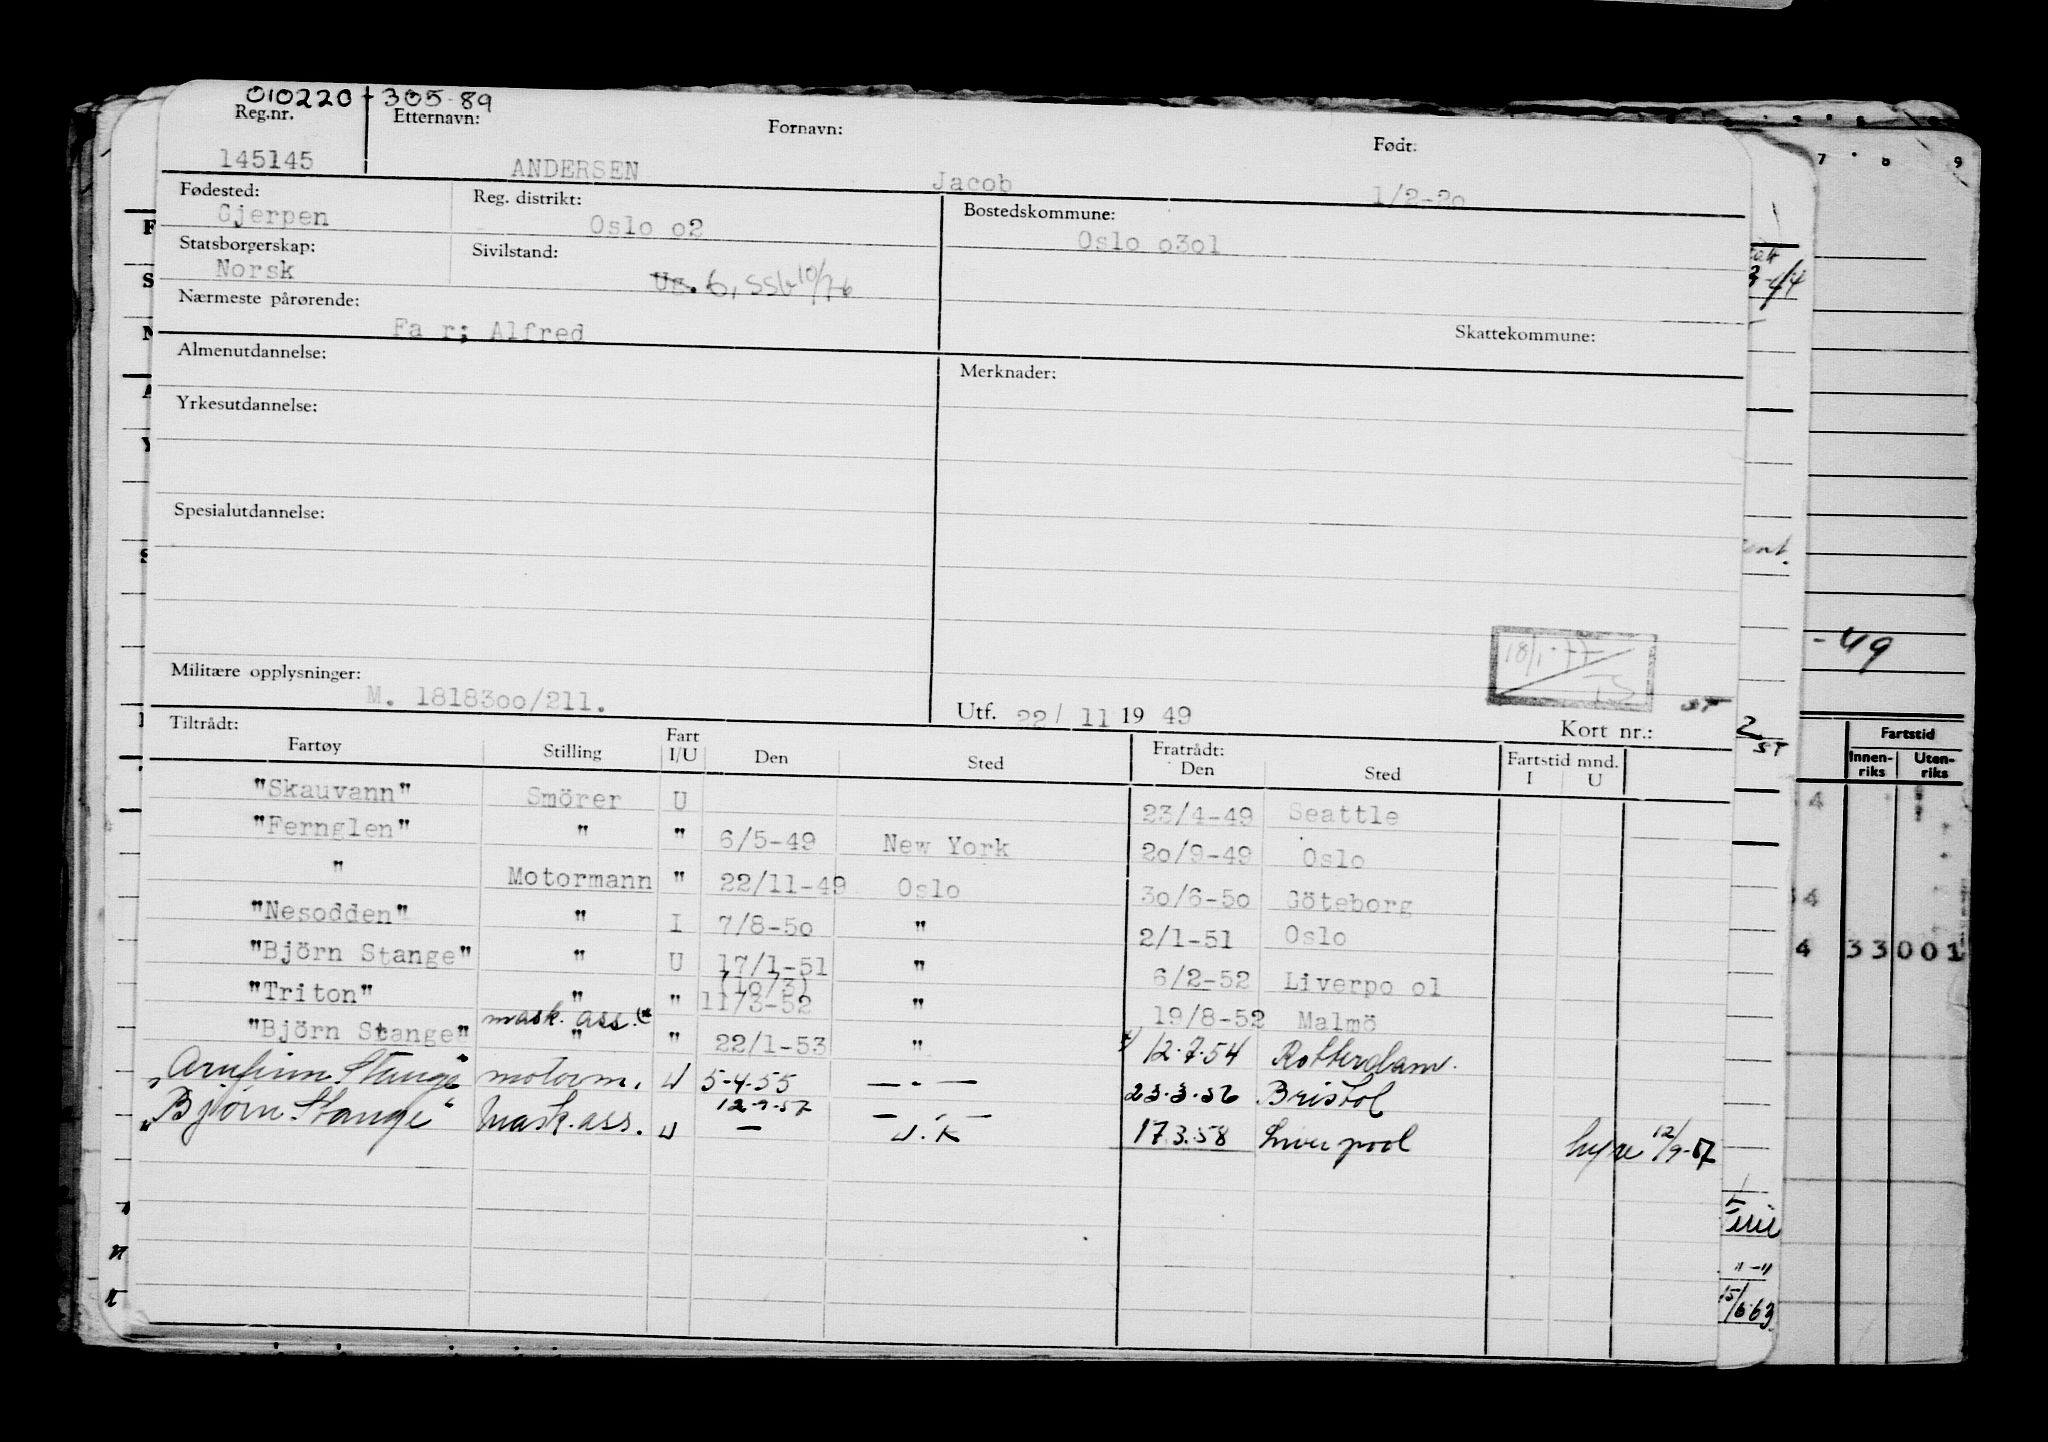 010220 - 305 89
Reg.nr. Etternavn: Fornavn: Født:
145145 ANDERSEN Jacob 1/2-20
Fødested: Reg. distrikt: Bostedskommune:
Gjerpen Oslo o2 Oslo o3o1
Statsborgerskap: Sivilstand:
Norsk Ug. 6, SSb 10/76
Nærmeste pårørende: Skattekommune:
Fa r; Alfred
Almenutdannelse: Merknader:
Yrkesutdannelse:
Spesialutdannelse:
18/1-77
Militære opplysninger:
M. 18183oo/211.
Utf. 22/ 11 19 49 ST
Tiltrådt: Kort nr.:
Fartøy Stilling Fart I/U Den Sted Fratrådt: Den Sted Fartstid mnd. I U
"Skauvann" Smörer U 23/4-49 Seattle
"Fernglen" " " 6/5-49 New York 2o/9-49 Oslo
" Motormann " 22/11-49 Oslo 3o/6-5o Göteborg
"Nesodden" " I 7/8-5o " 2/1-51 Oslo
"Björn Stange" " U 17/1-51 " 6/2-52 Liverpo ol
(1o/3)
"Triton" " " 11/3-52 " 19/8-52 Malmö
mask. ass. (*
"Björn Stange" " " 22/1-53 " *) 12.7.54 Rotterdam.
"Arnfinn Stange motorm. U 5-4.55 — . — 23.3.56 Bristol
12-9-57
"Björn Stange" Mask.ass. U — U.K 17.3.58 Liverpool hyre 12/9-57
-49
2
ST
Fartstid
Innen-riks Uten-riks
4
4
4 33 001
15/6.63.
7 8 9